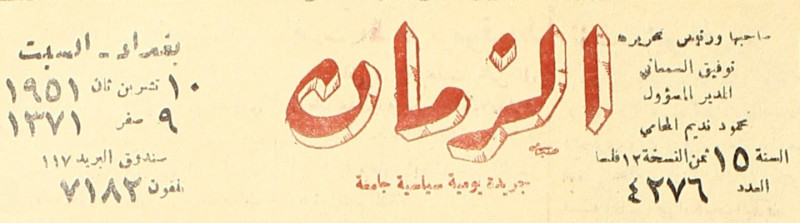 صاحبها ورئيس تحريرها
توفيق السمعاني
المدير المسؤول
محمود نديم المحامي
السنة ١٥ ثمن النسخة ١٢ فلسا
العدد ٤٢٧٦
الزمان
جريدة يومية سياسية جامعة
بغداد - السبت
١٠ تشرين ثان ١٩٥١
٩ صفر ١٣٧١
صندوق البريد ١١٧
تلفون ٧١٨٢